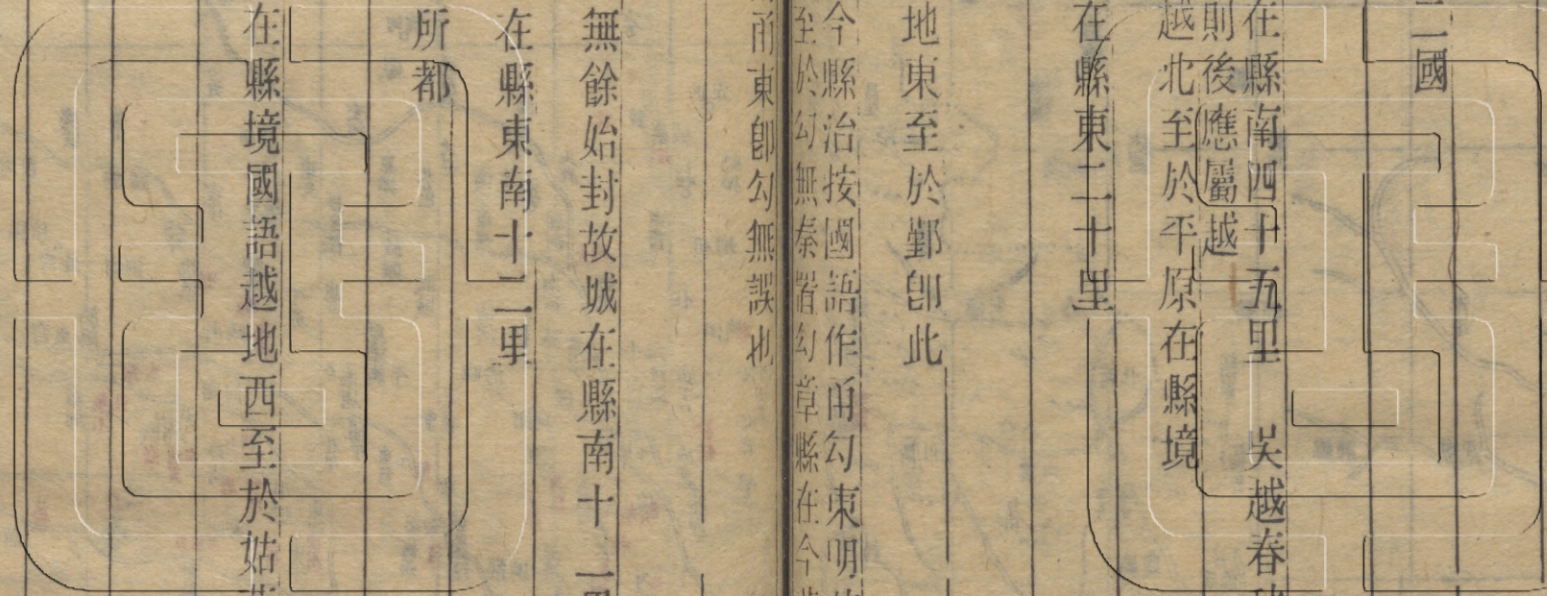 二國
在縣南四十五里 吳越春
則後應屬越
越北至於平原在縣境
在縣東二十里
地東至於鄞卽此
今縣治按國語作甬勾東明
至於勾無秦置勾章縣在今
甬東卽勾無誤也
無餘始封故城在縣南十一里
在縣東南十二里
所都
在縣境國語越地西至於姑